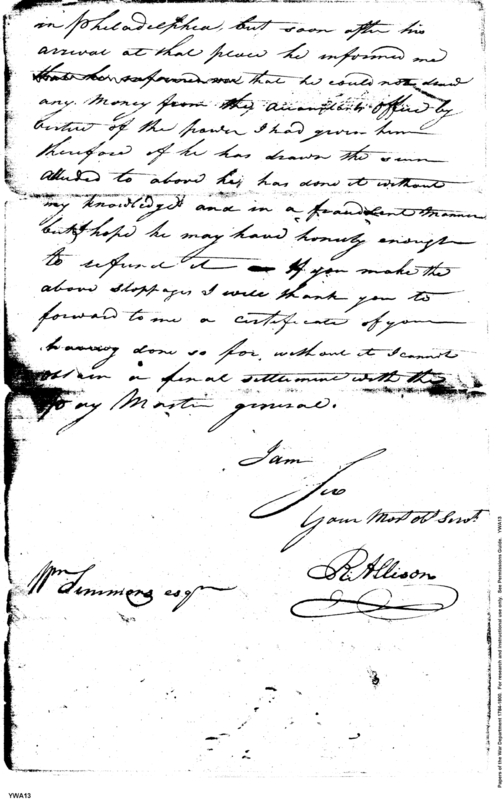 in Philadelphia, but soon after his
arrival at that place he informed me
that he could not draw
any Money from the Accountants Office by
virtue of the power I had given him
therefore if he has drawn the sum
alluded to above he has done it without
my knowledge and in a fraudulent manner
but I hope he may have honesty enough
to refund it — If you make the
above stoppages I will thank you to
forward to me a certificate of your
having done so for, without it I cannot
obtain a final settlement with the
Pay Master general.
I am
Sir
Your Most obt Servt
R: Allison
Wm Simmons esqr
Papers of the War Department 1784-1800. For research and instructional use only. See Permissions Guide. YWA13
YWA13